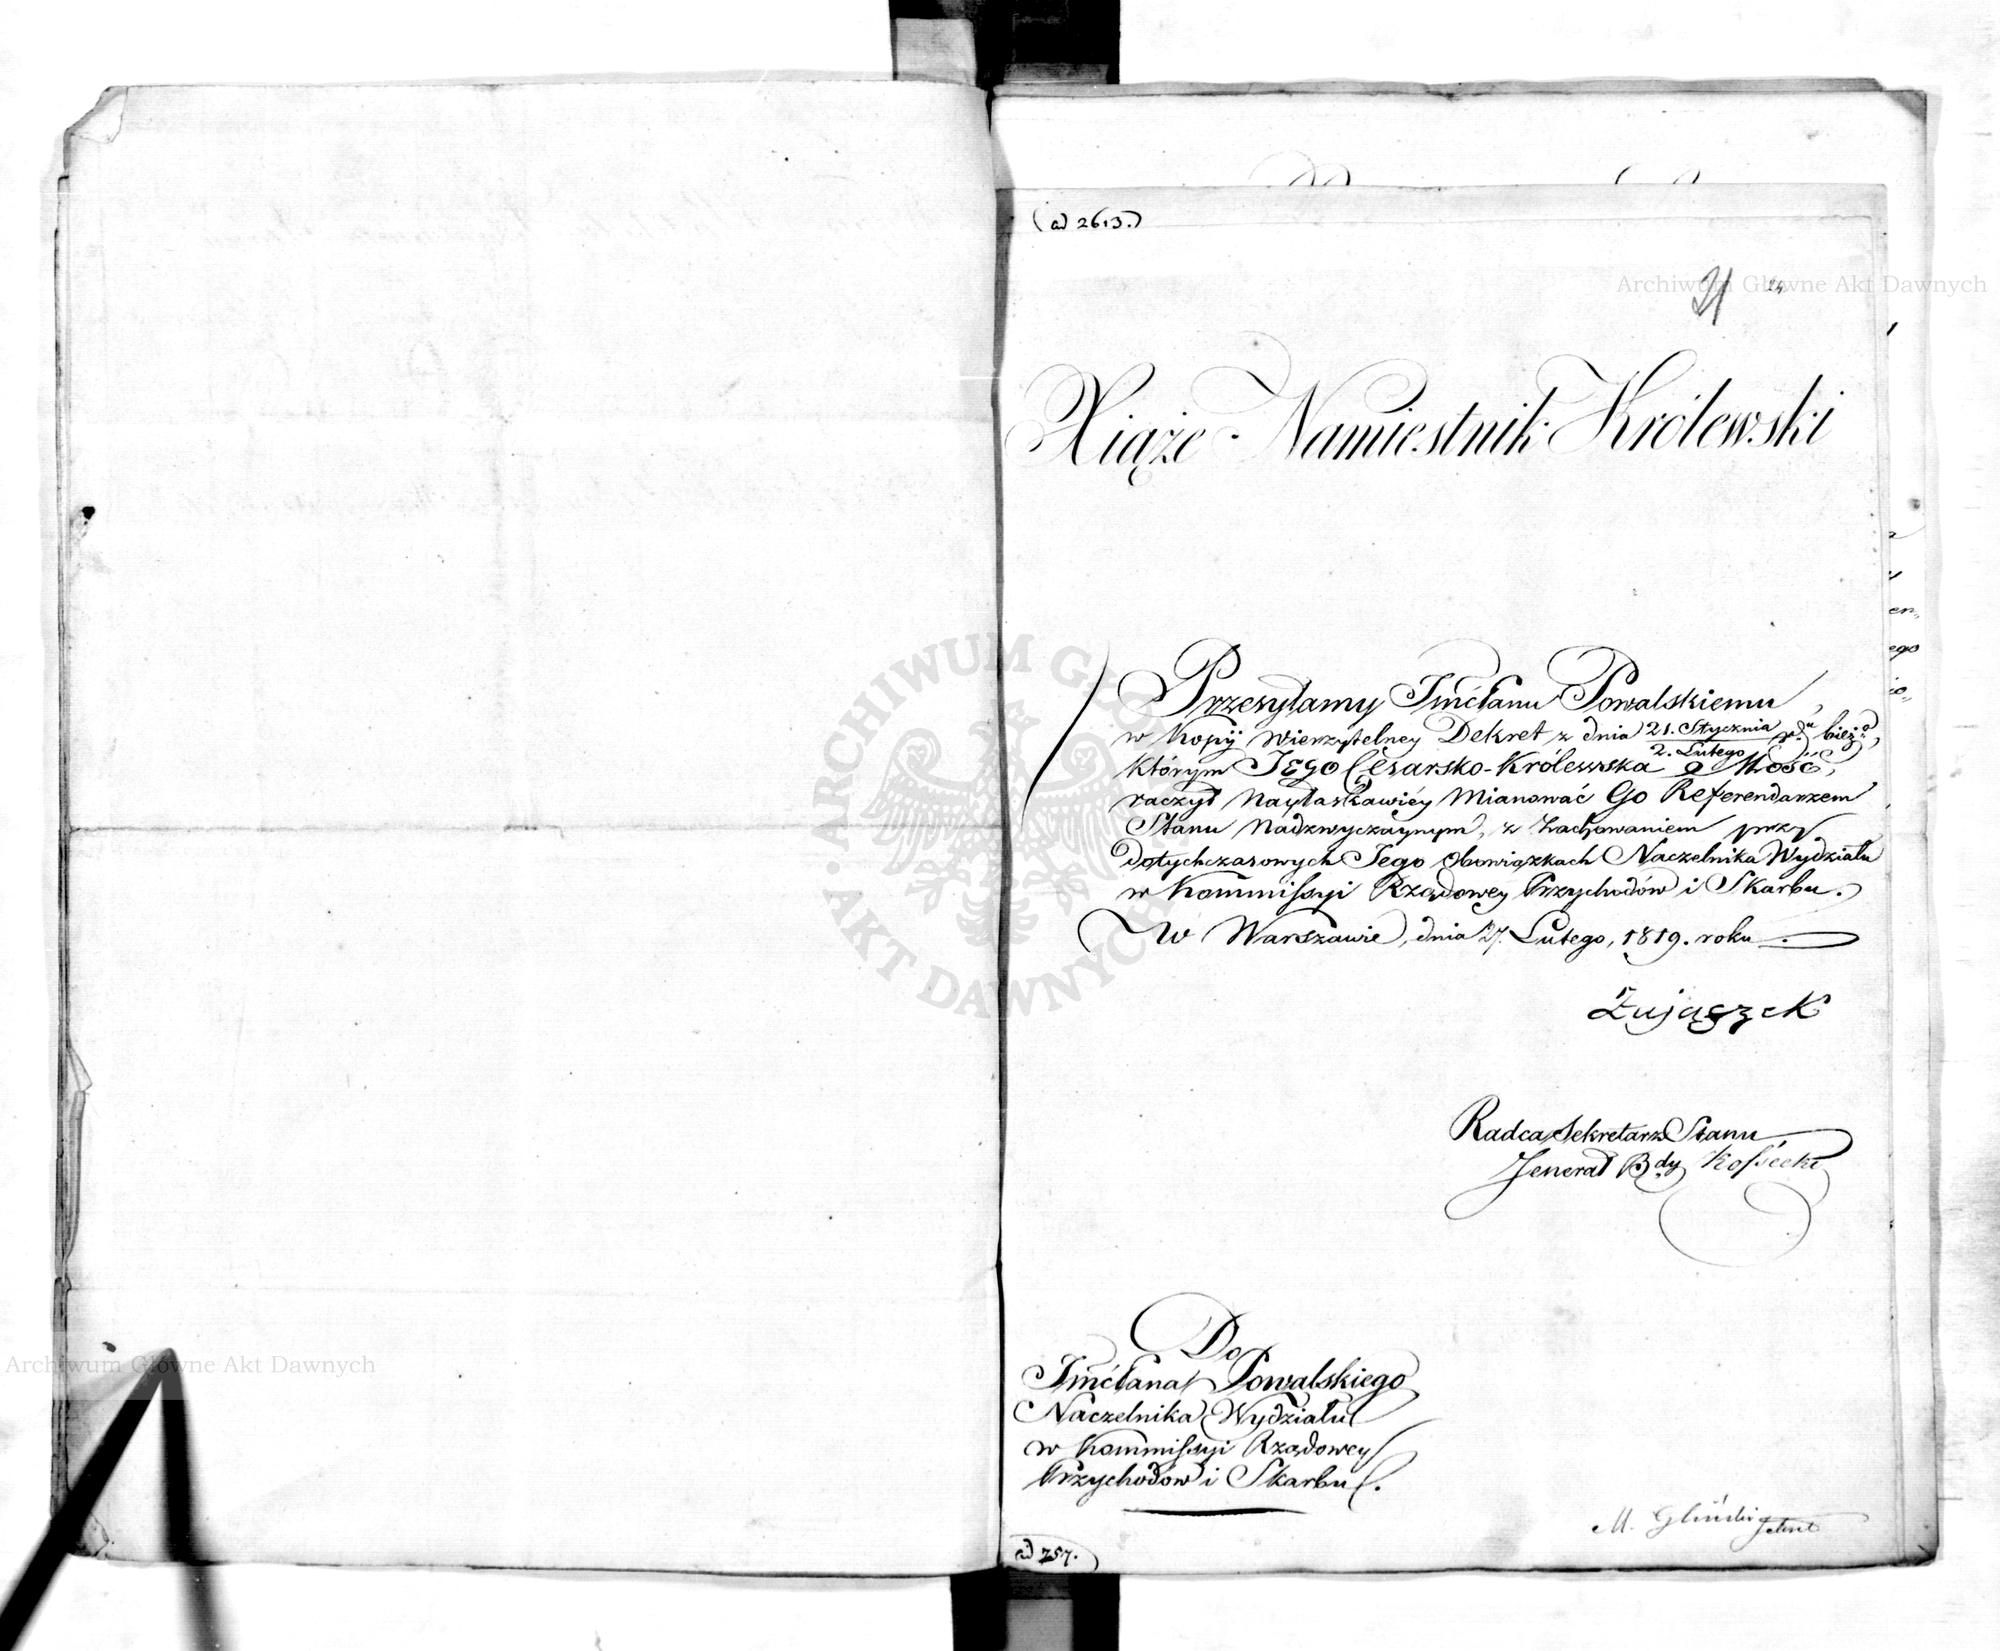 (ad 2613.)
21 24
Xiąże Namiestnik Królewski
Przesyłamy JmćPanu Powalskiemu
w Kopij Wierzytelney Dekret z dnia 21. Stycznia / 2. Lutego r.u bież:o,
którym JEgo Cesarsko-Królewska Mość,
raczył Nayłaskawiéy Mianować Go Referendarzem
Stanu Nadzwyczaynym, z Zachowaniem przy
dotychczasowych Jego obowiązkach Naczelnika Wydziału
w Kommissyi Rządowey Przychodów i Skarbu.
W Warszawie, dnia 27. Lutego, 1819. roku.
Zajączek
Radca Sekretarz Stanu
Jenerał Bdy Kossecki
Do
JmćPana Powalskiego
Naczelnika Wydziału
w Kommissyi Rządowey
Przychodów i Skarbu.
M. Gliński
ad 757.
Archiwum Główne Akt Dawnych
Archiwum Główne Akt Dawnych
ARCHIWUM AKT DAWNYCH